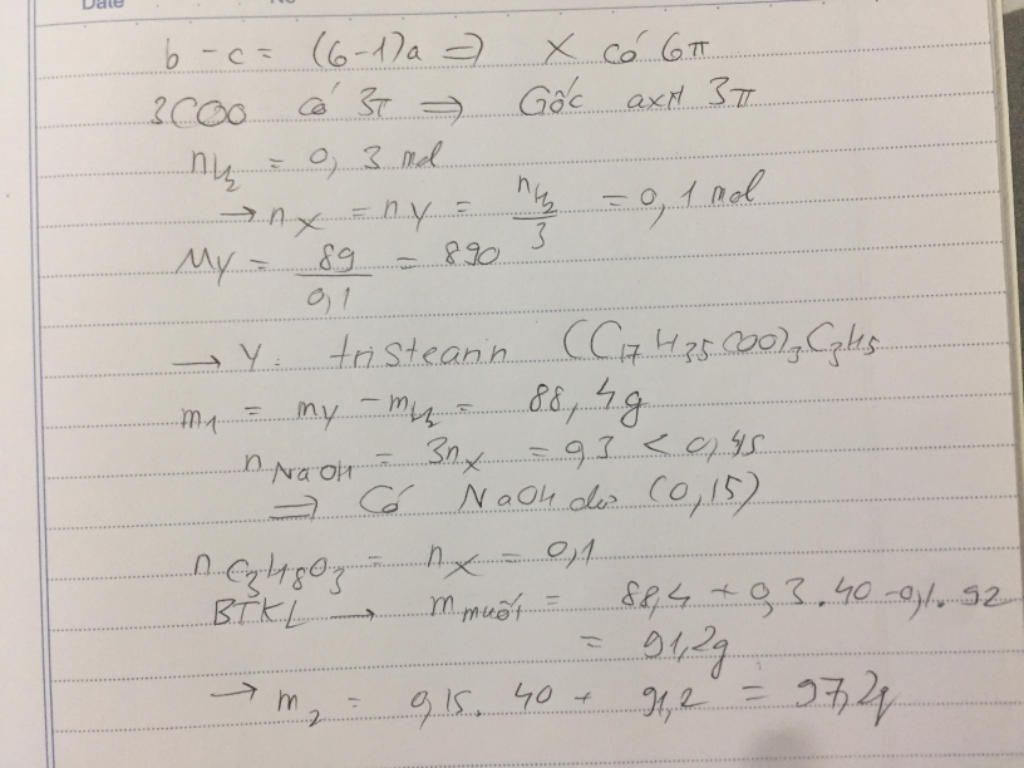 Date No
b - c = (6-1)a => X có 6π
3COO có 3π => Gốc axit 3π
nH2 = 0,3 mol
→ nX = nY = nH2/3 = 0,1 mol
MY = 89/0,1 = 890
→ Y: tristearin (C17H35COO)3C3H5
m1 = mY - mH2 = 88,4g
nNaOH = 3nX = 0,3 < 0,45
=> Có NaOH dư (0,15)
nC3H8O3 = nX = 0,1
BTKL → mmuối = 88,4 + 0,3.40 - 0,1.92
= 91,2g
→ m2 = 0,15.40 + 91,2 = 97,2g